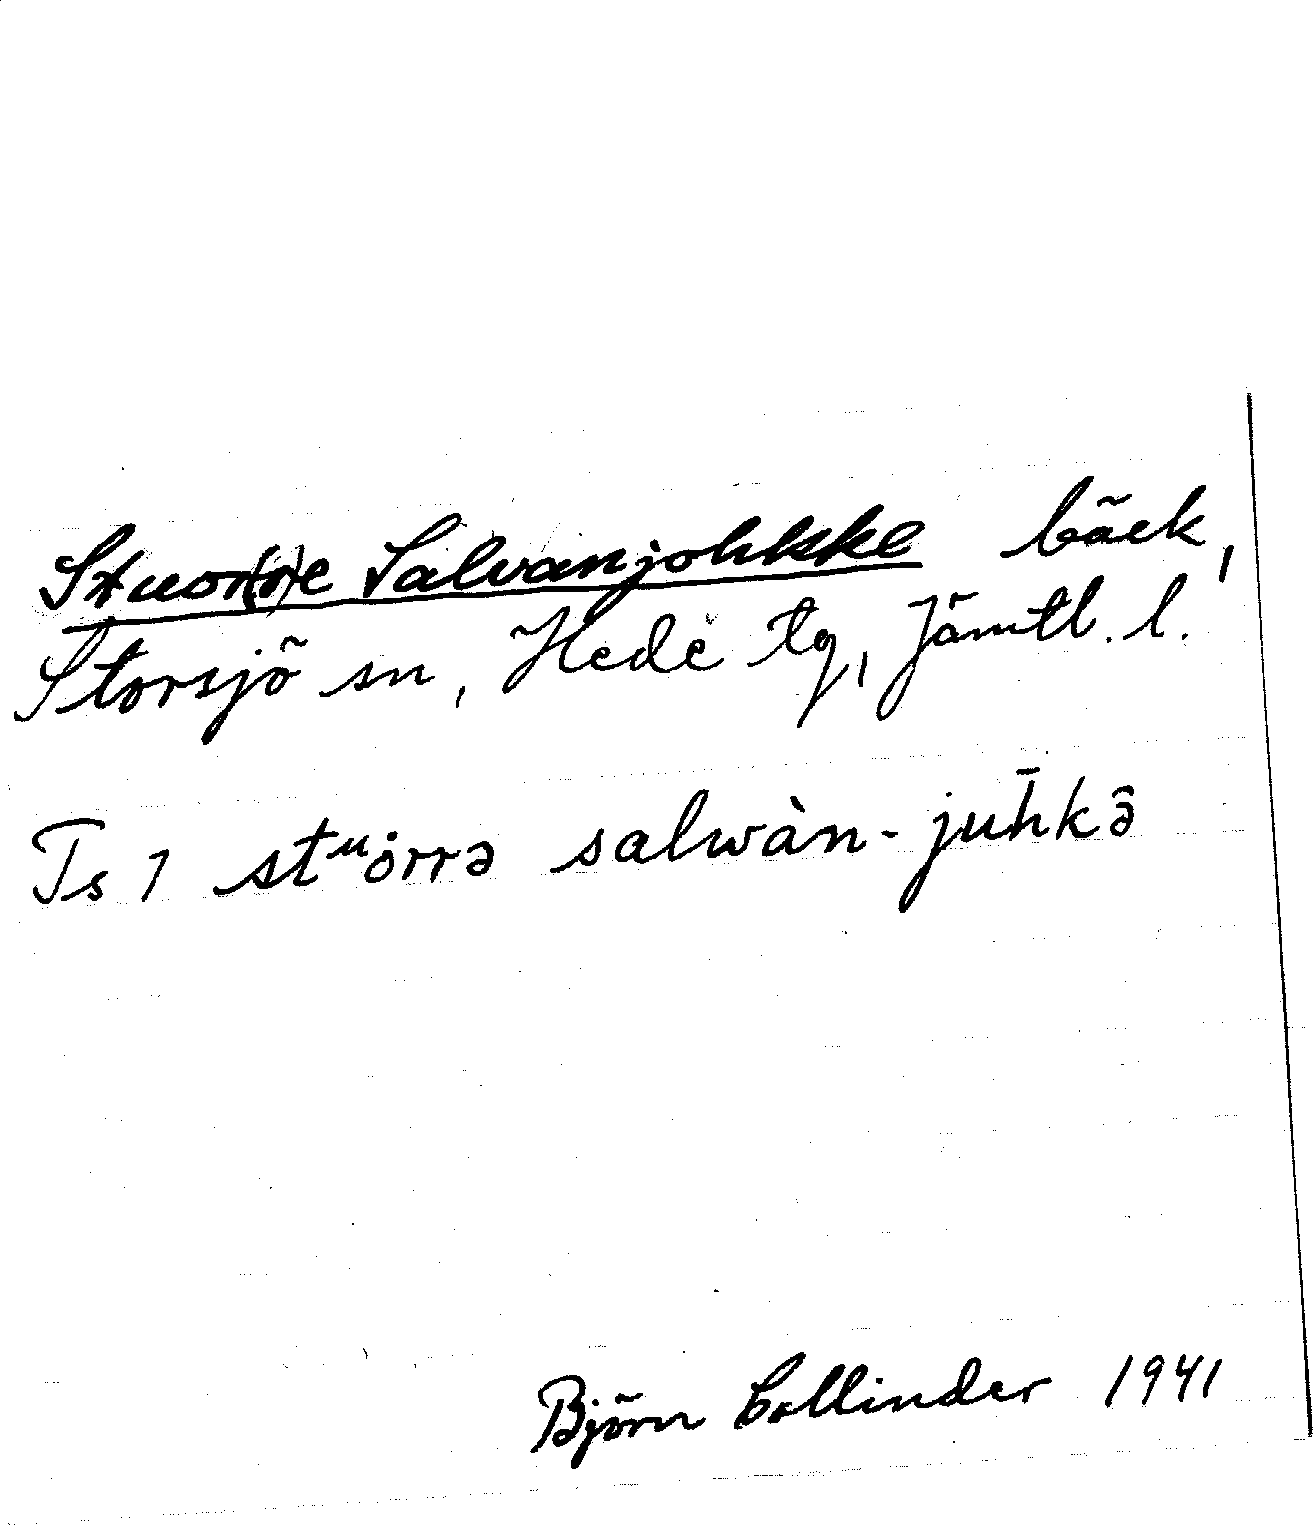 Stuor(r)e Salvanjohkke bäck,
Storsjö sn, Hede tg, Jämtl. l.
Ts 1 stᵘȯrrə salwàn-juh̄kə̂
Björn Collinder 1941